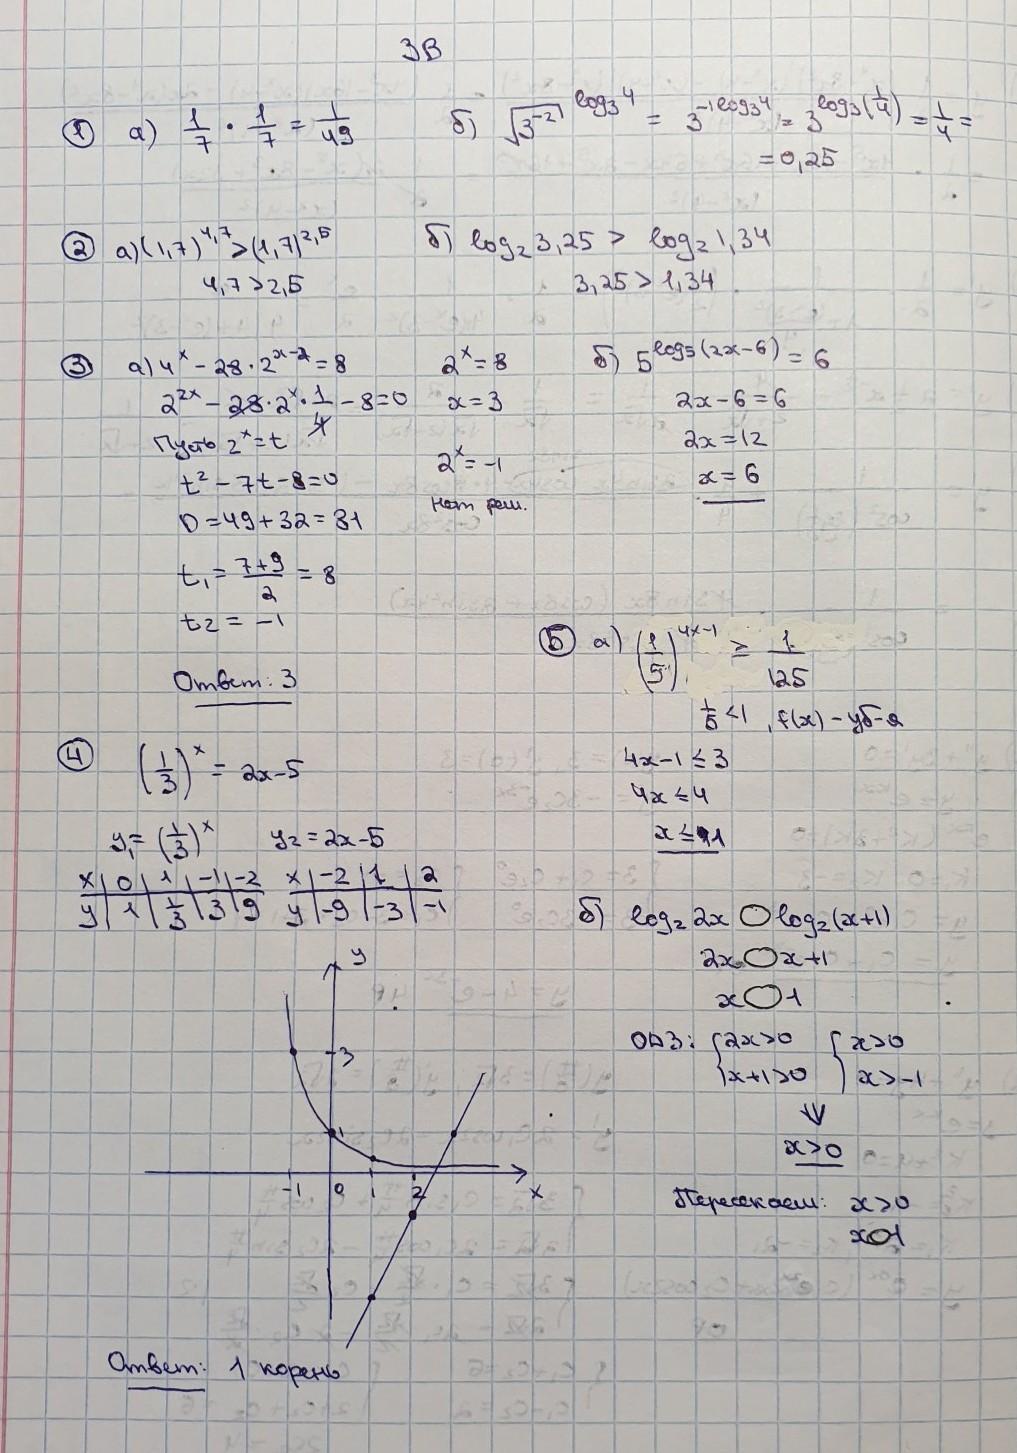 3В
① а) 1/7 · 1/7 = 1/49
б) √3^-2 ^log₃4 = 3^-1log₃4 = 3^log₃(1/4) = 1/4 =
= 0,25
② а) (1,7)^4,7 > (1,7)^2,5
4,7 > 2,5
б) log₂ 3,25 > log₂ 1,34
3,25 > 1,34
③ а) 4^x − 28 · 2^x−2 = 8
2^2x − 28 · 2^x · 1/4 − 8 = 0
Пусть 2^x = t
t² − 7t − 8 = 0
D = 49 + 32 = 81
t₁ = (7+9)/2 = 8
t₂ = −1
2^x = 8
x = 3
2^x = −1
нет реш.
Ответ: 3
б) 5^log5(2x−6) = 6
2x − 6 = 6
2x = 12
x = 6
④ (1/3)^x = 2x − 5
y₁ = (1/3)^x y₂ = 2x − 5
x | 0 | 1 | −1 | −2
y | 1 | 1/3 | 3 | 9
x | −2 | 1 | 2
y | −9 | −3 | −1
y
3
1
−1 0 1 2 x
Ответ: 1 корень
⑤ а) (1/5)^4x−1 ≥ 1/125
1/5 < 1, f(x) – уб-я
4x − 1 ≤ 3
4x ≤ 4
x ≤ 1
б) log₂ 2x ◯ log₂ (x+1)
2x ◯ x+1
x ◯ 1
ОДЗ: { 2x > 0 { x > 0
x+1 > 0 x > −1
⇓
x > 0
Пересекаем: x > 0
x ◯ 1